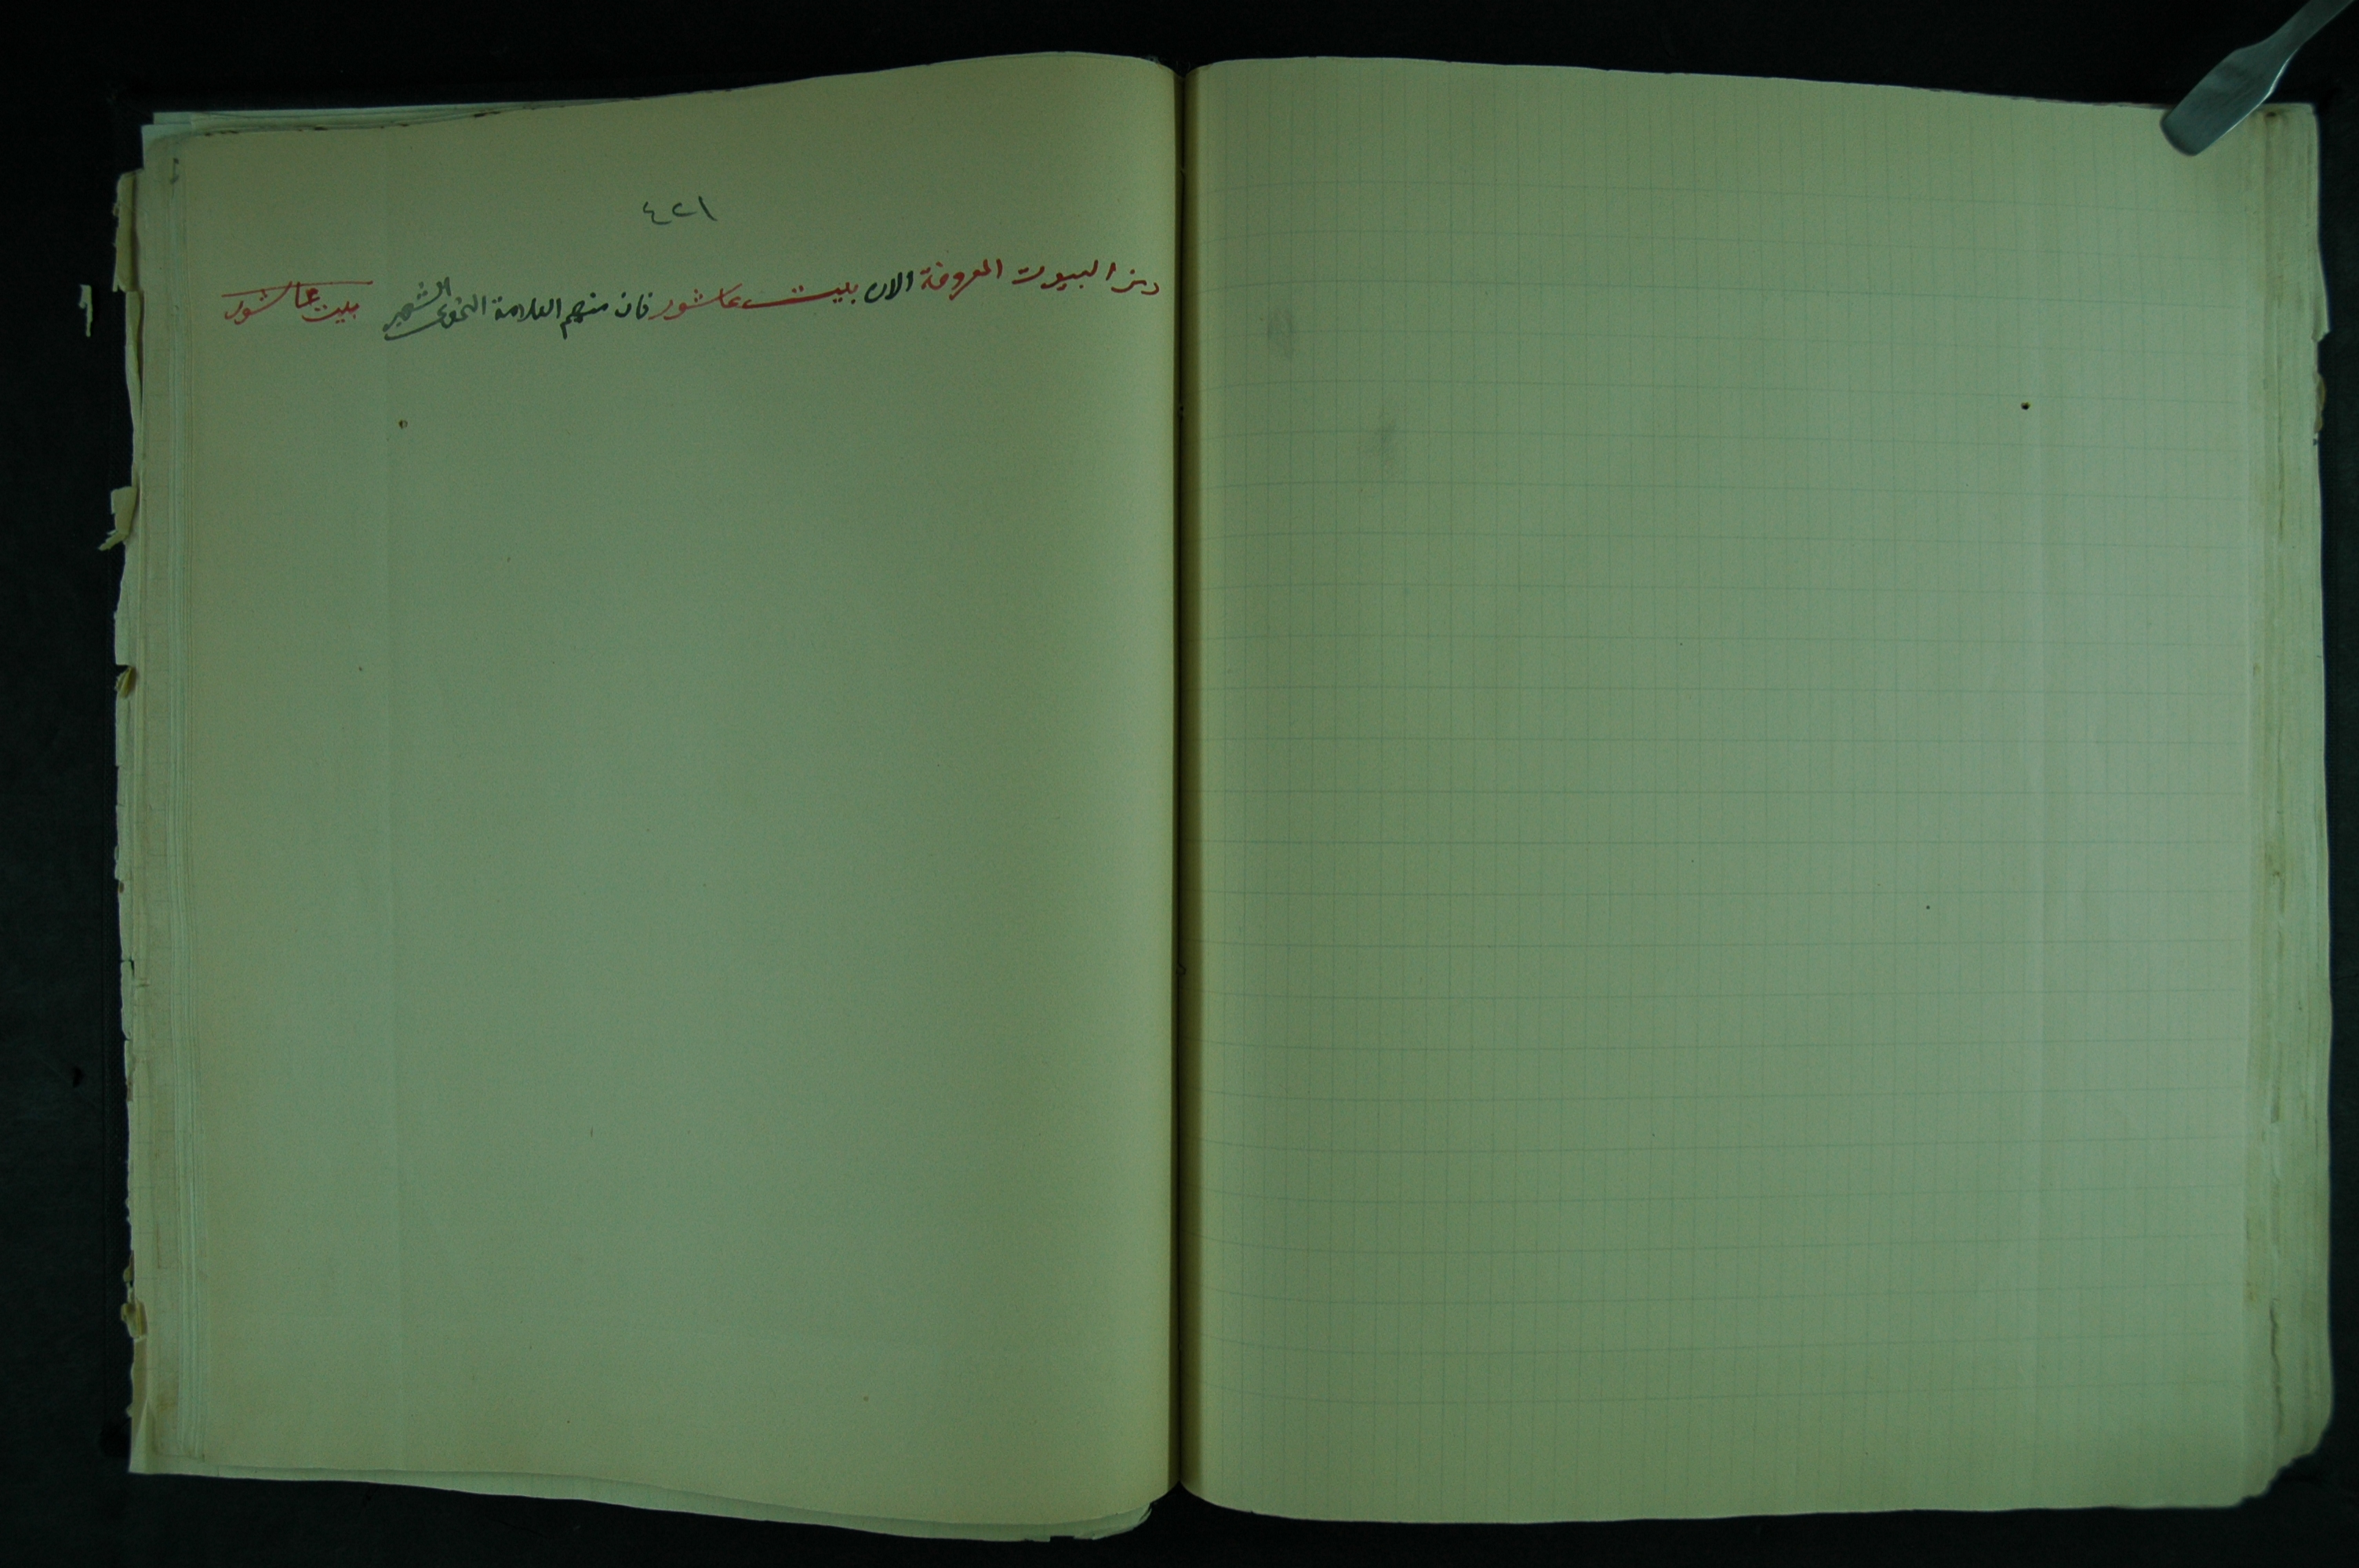 ٤٢١
ومن البيوت المعروفة الان بيت عاشور فان منهم العلامة النحوى الشهير
بيت عاشور